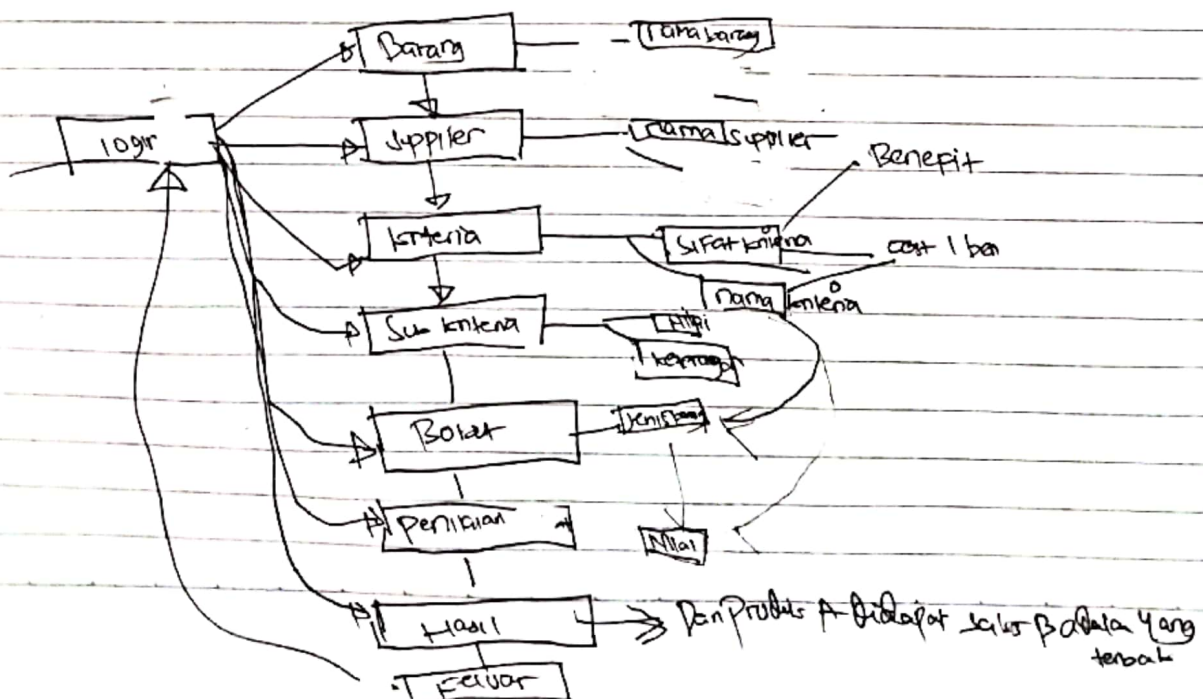 Barang
nama barang
login
Supplier
nama supplier
Benepit
Kriteria
Sifat kriteria
cost / ben
nama kriteria
Sub kriteria
Nilai
Bobot
Jenis barang
Penilaian
Nilai
Hasil
Dari Produk A didapat sales B adalah yang
terbaik
Keluar